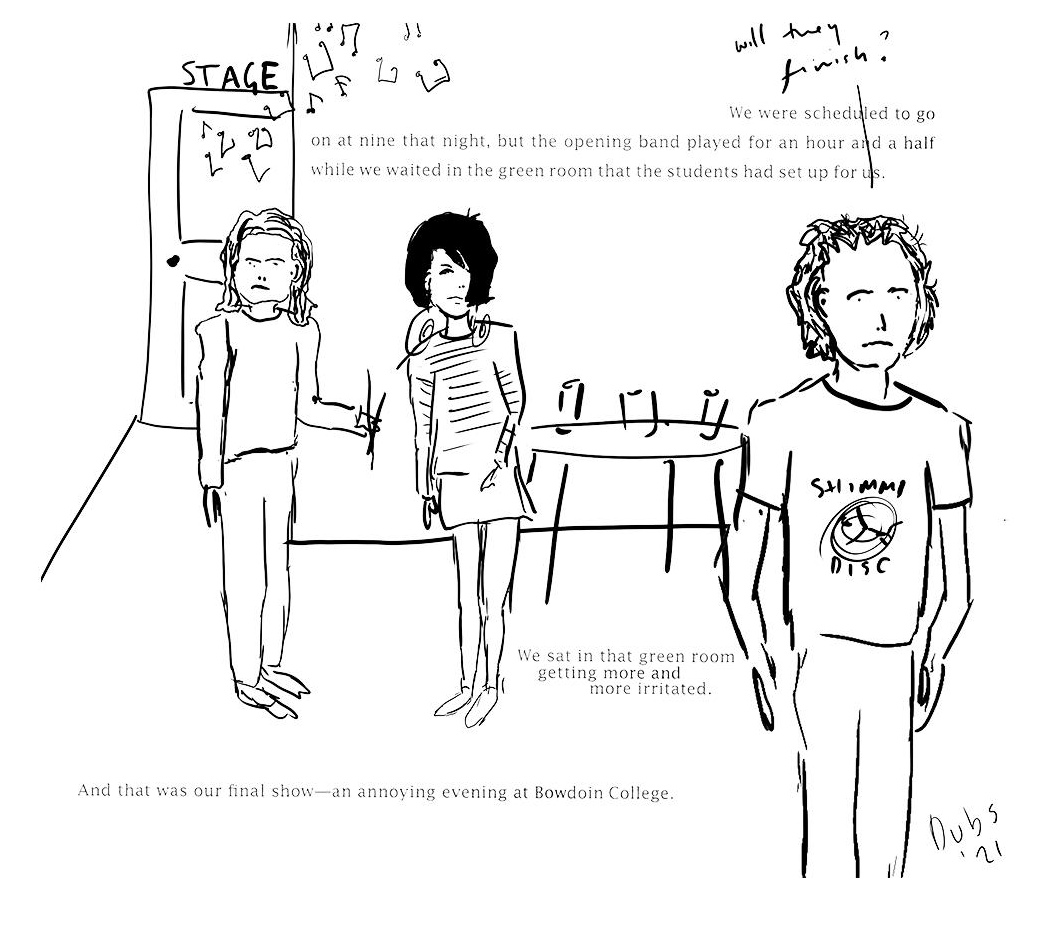 STAGE
will they
finish?
We were scheduled to go
on at nine that night, but the opening band played for an hour and a half
while we waited in the green room that the students had set up for us.
SHIMMY
DISC
We sat in that green room
getting more and
more irritated.
And that was our final show—an annoying evening at Bowdoin College.
Dubs
'21